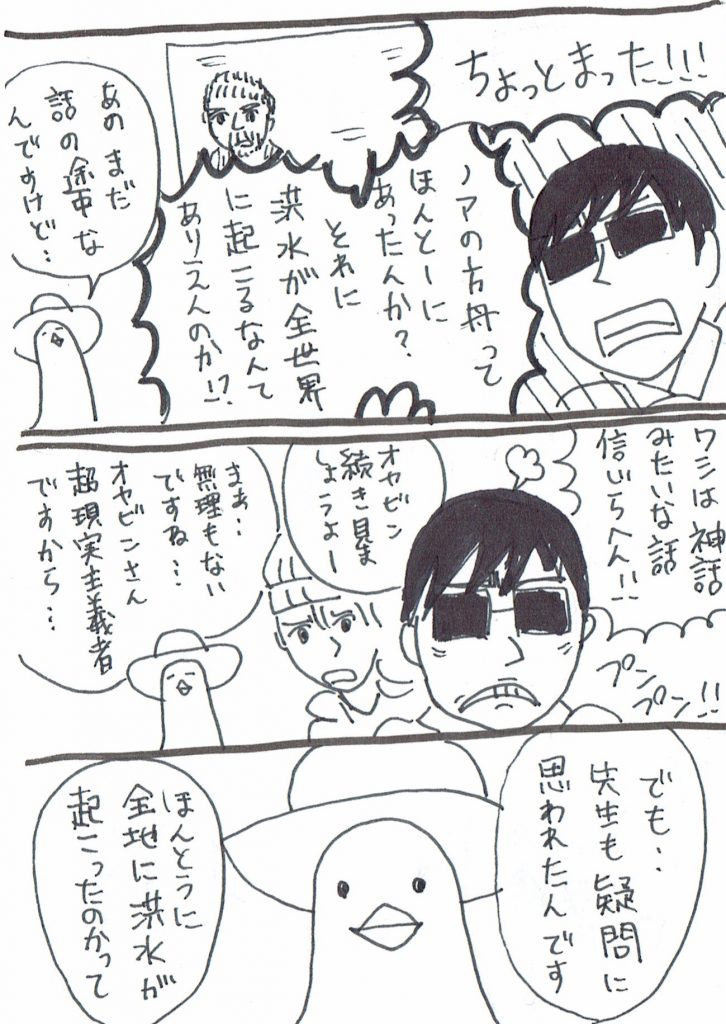 ちょっとまった!!!
ノアの方舟って
ほんとーに
あったんか?
それに
洪水が全世界
に起こるなんて
ありえんのか!?
あのまだ
話の途中な
んですけど…
ワシは神話
みたいな話
信じらへん!!
プン
プン!!
オヤビン
続き見ま
しょうよー
まぁ…
無理もない
ですね…
オヤビンさん
超現実主義者
ですから…
でも…
先生も疑問に
思われたんです
ほんとうに
全地に洪水が
起こったのかって